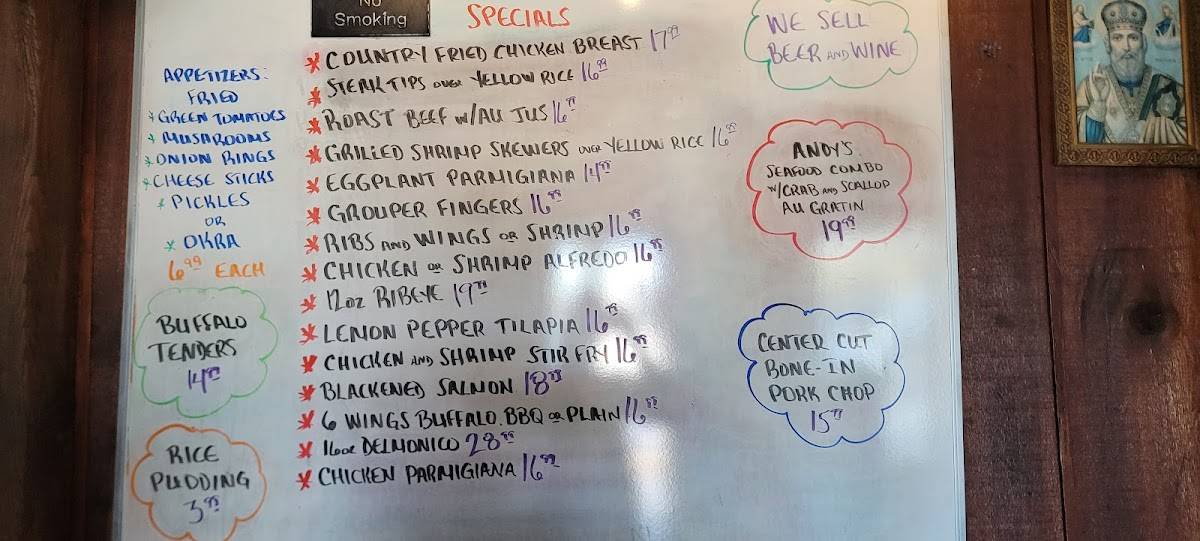 No
Smoking
SPECIALS
* COUNTRY FRIED CHICKEN BREAST 17.99
* STEAK TIPS OVER YELLOW RICE 16.99
* ROAST BEEF W/AU JUS 16.99
* GRILLED SHRIMP SKEWERS OVER YELLOW RICE 16.99
* EGGPLANT PARMIGIANA 14.99
* GROUPER FINGERS 16.99
* RIBS AND WINGS OR SHRIMP 16.99
* CHICKEN OR SHRIMP ALFREDO 16.99
* 12oz RIBEYE 19.99
* LEMON PEPPER TILAPIA 16.99
* CHICKEN AND SHRIMP STIR FRY 16.99
* BLACKENED SALMON 18.99
* 6 WINGS BUFFALO. BBQ OR PLAIN 16.99
* 16oz DELMONICO 28.99
* CHICKEN PARMIGIANA 16.99
APPETIZERS:
FRIED
* GREEN TOMATOES
* MUSHROOMS
* ONION RINGS
* CHEESE STICKS
* PICKLES
OR
* OKRA
6.99 EACH
BUFFALO
TENDERS
14.99
RICE
PUDDING
3.99
WE SELL
BEER AND WINE
ANDY'S
SEAFOOD COMBO
W/CRAB AND SCALLOP
AU GRATIN
19.99
CENTER CUT
BONE-IN
PORK CHOP
15.99